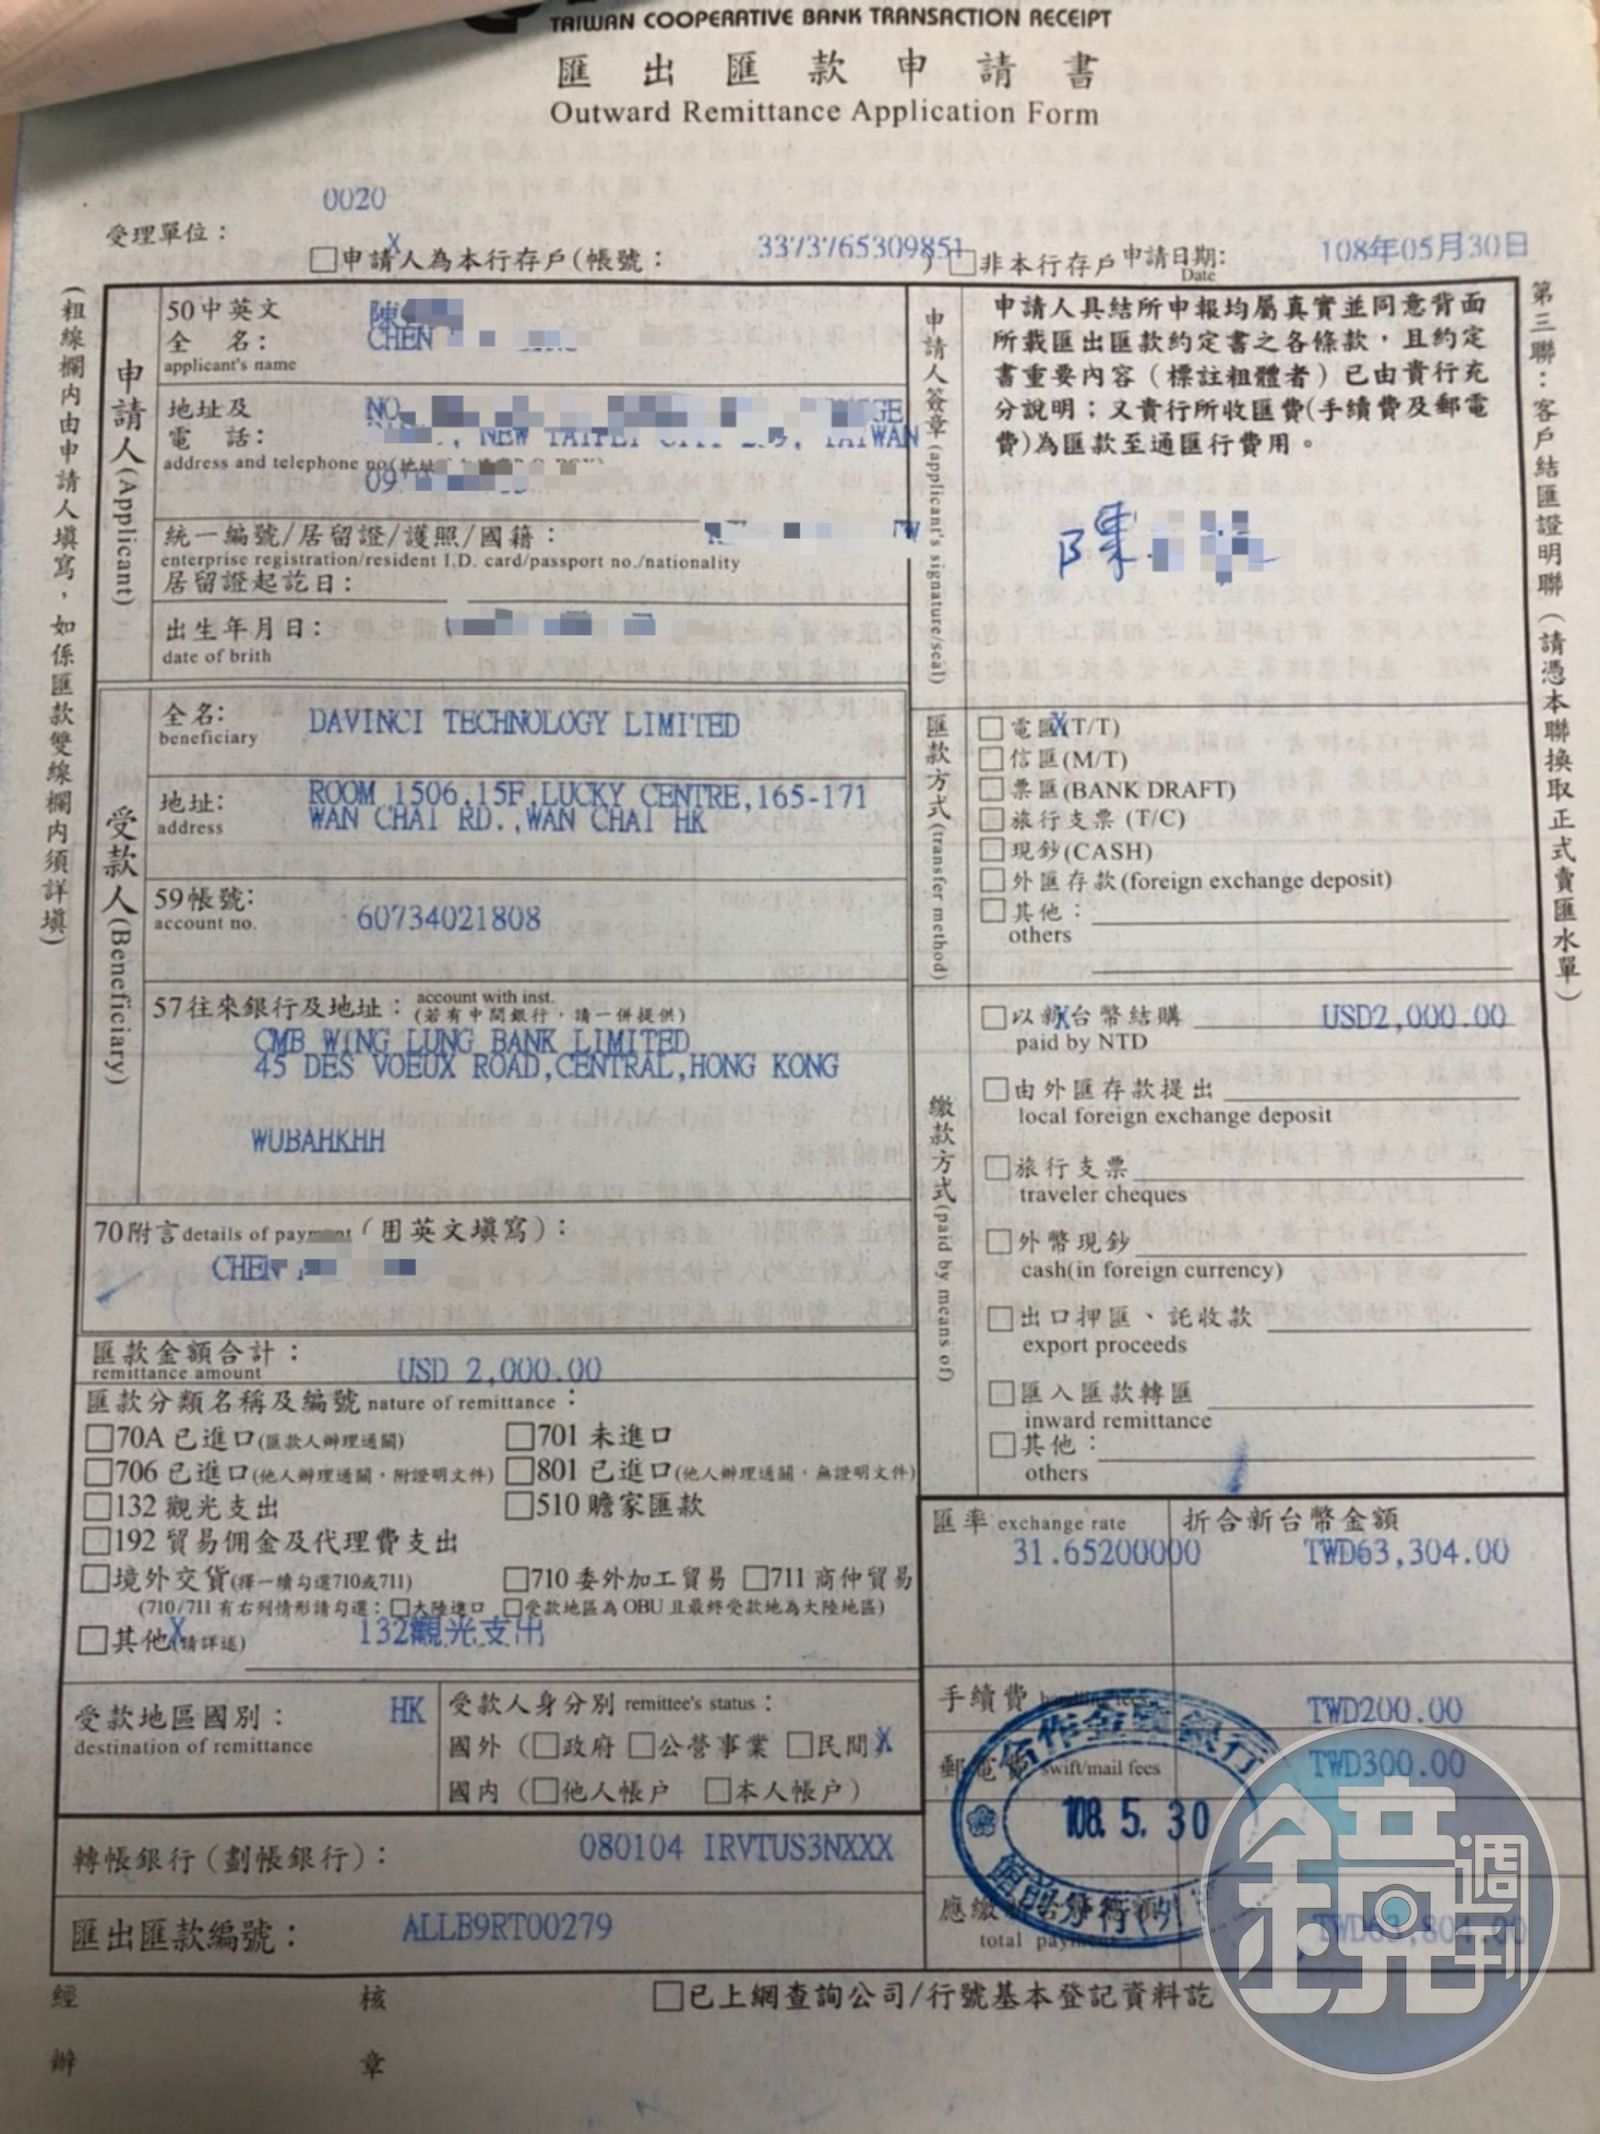 TAIWAN COOPERATIVE BANK TRANSACTION RECEIPT
匯出匯款申請書
Outward Remittance Application Form
0020
受理單位：
□申請人為本行存戶(帳號： 3373765309851 ) □非本行存戶
X
申請日期: 108年05月30日
Date
(粗線欄內由申請人填寫，如係匯款雙線欄內須詳填)
第三聯：客戶結匯證明聯(請憑本聯換取正式賣匯水單)
申請人(Applicant)
50中英文
全 名:
applicant's name
陳
CHEN
地址及
電 話:
address and telephone no
NO
GE
, NEW TAIPEI CITY , TAIWAN
09
統一編號/居留證/護照/國籍：
enterprise registration/resident I.D. card/passport no./nationality
居留證起訖日:
出生年月日:
date of brith
申請人簽章(applicant's signature/seal)
申請人具結所申報均屬真實並同意背面
所載匯出匯款約定書之各條款，且約定
書重要內容（標註粗體者）已由貴行充
分說明；又貴行所收匯費(手續費及郵電
費)為匯款至通匯行費用。
陳
受款人(Beneficiary)
全名:
beneficiary
DAVINCI TECHNOLOGY LIMITED
地址:
address
ROOM 1506,15F,LUCKY CENTRE,165-171
WAN CHAI RD.,WAN CHAI HK
59帳號:
account no.
60734021808
57往來銀行及地址： account with inst.
(若有中間銀行，請一併提供)
CMB WING LUNG BANK LIMITED
45 DES VOEUX ROAD,CENTRAL,HONG KONG
WUBAHKHH
70附言details of payment (用英文填寫)：
CHEN
匯款金額合計：
remittance amount
USD 2,000.00
匯款分類名稱及編號 nature of remittance：
□70A 已進口(匯款人辦理通關) □701 未進口
□706 已進口(他人辦理通關，附證明文件) □801 已進口(他人辦理通關，無證明文件)
□132 觀光支出 □510 贍家匯款
□192 貿易佣金及代理費支出
□境外交貨(擇一續勾選710或711) □710 委外加工貿易 □711 商仲貿易
(710/711 有右列情形請勾選：□大陸進口 □受款地區為 OBU 且最終受款地為大陸地區)
□其他(請詳述) X 132觀光支出
受款地區國別：
destination of remittance
HK
受款人身分別 remittee's status：
國外（□政府 □公營事業 □民間 X
國內（□他人帳戶 □本人帳戶）
轉帳銀行(劃帳銀行)： 080104 IRVTUS3NXXX
匯出匯款編號： ALLB9RT00279
匯款方式(transfer method)
□電匯(T/T) X
□信匯(M/T)
□票匯(BANK DRAFT)
□旅行支票 (T/C)
□現鈔(CASH)
□外匯存款(foreign exchange deposit)
□其他：
others
繳款方式(paid by means of)
□以新台幣結購 X USD2,000.00
paid by NTD
□由外匯存款提出
local foreign exchange deposit
□旅行支票
traveler cheques
□外幣現鈔
cash(in foreign currency)
□出口押匯、託收款
export proceeds
□匯入匯款轉匯
inward remittance
□其他：
others
匯率 exchange rate
31.65200000
折合新台幣金額
TWD63,304.00
手續費
TWD200.00
郵電費 swift/mail fees
TWD300.00
應繳
total payment
TWD63,804.00
合作金庫銀行
108. 5. 30
館前分行
□已上網查詢公司/行號基本登記資料訖
經辦
核章
鏡週刊